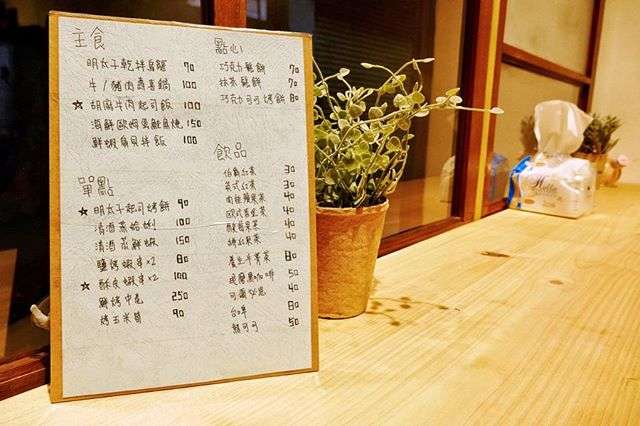 主食
明太子乾拌烏龍 70
牛/豬肉壽喜鍋 100
☆ 胡麻牛肉起司飯 100
海鮮歐姆 燒 150
鮮蝦 貝拌飯 100
單點
☆ 明太子起司烤餅 90
清酒蒸蛤蜊 100
清酒蒸鮮蝦 150
鹽烤蝦串×2 80
☆ 酥炙蝦串×2 100
鮮烤中卷 250
烤玉米筍 90
點心
巧克力鬆餅 70
抹茶鬆餅 70
巧克力可可烤餅 80
飲品
伯爵紅茶 30
英式紅茶 30
南非 茶 40
歐式 茶 40
果茶 40
茶 40
養生牛蒡茶 80
咖啡 50
可爾必思 40
台啤 80
熱可可 50